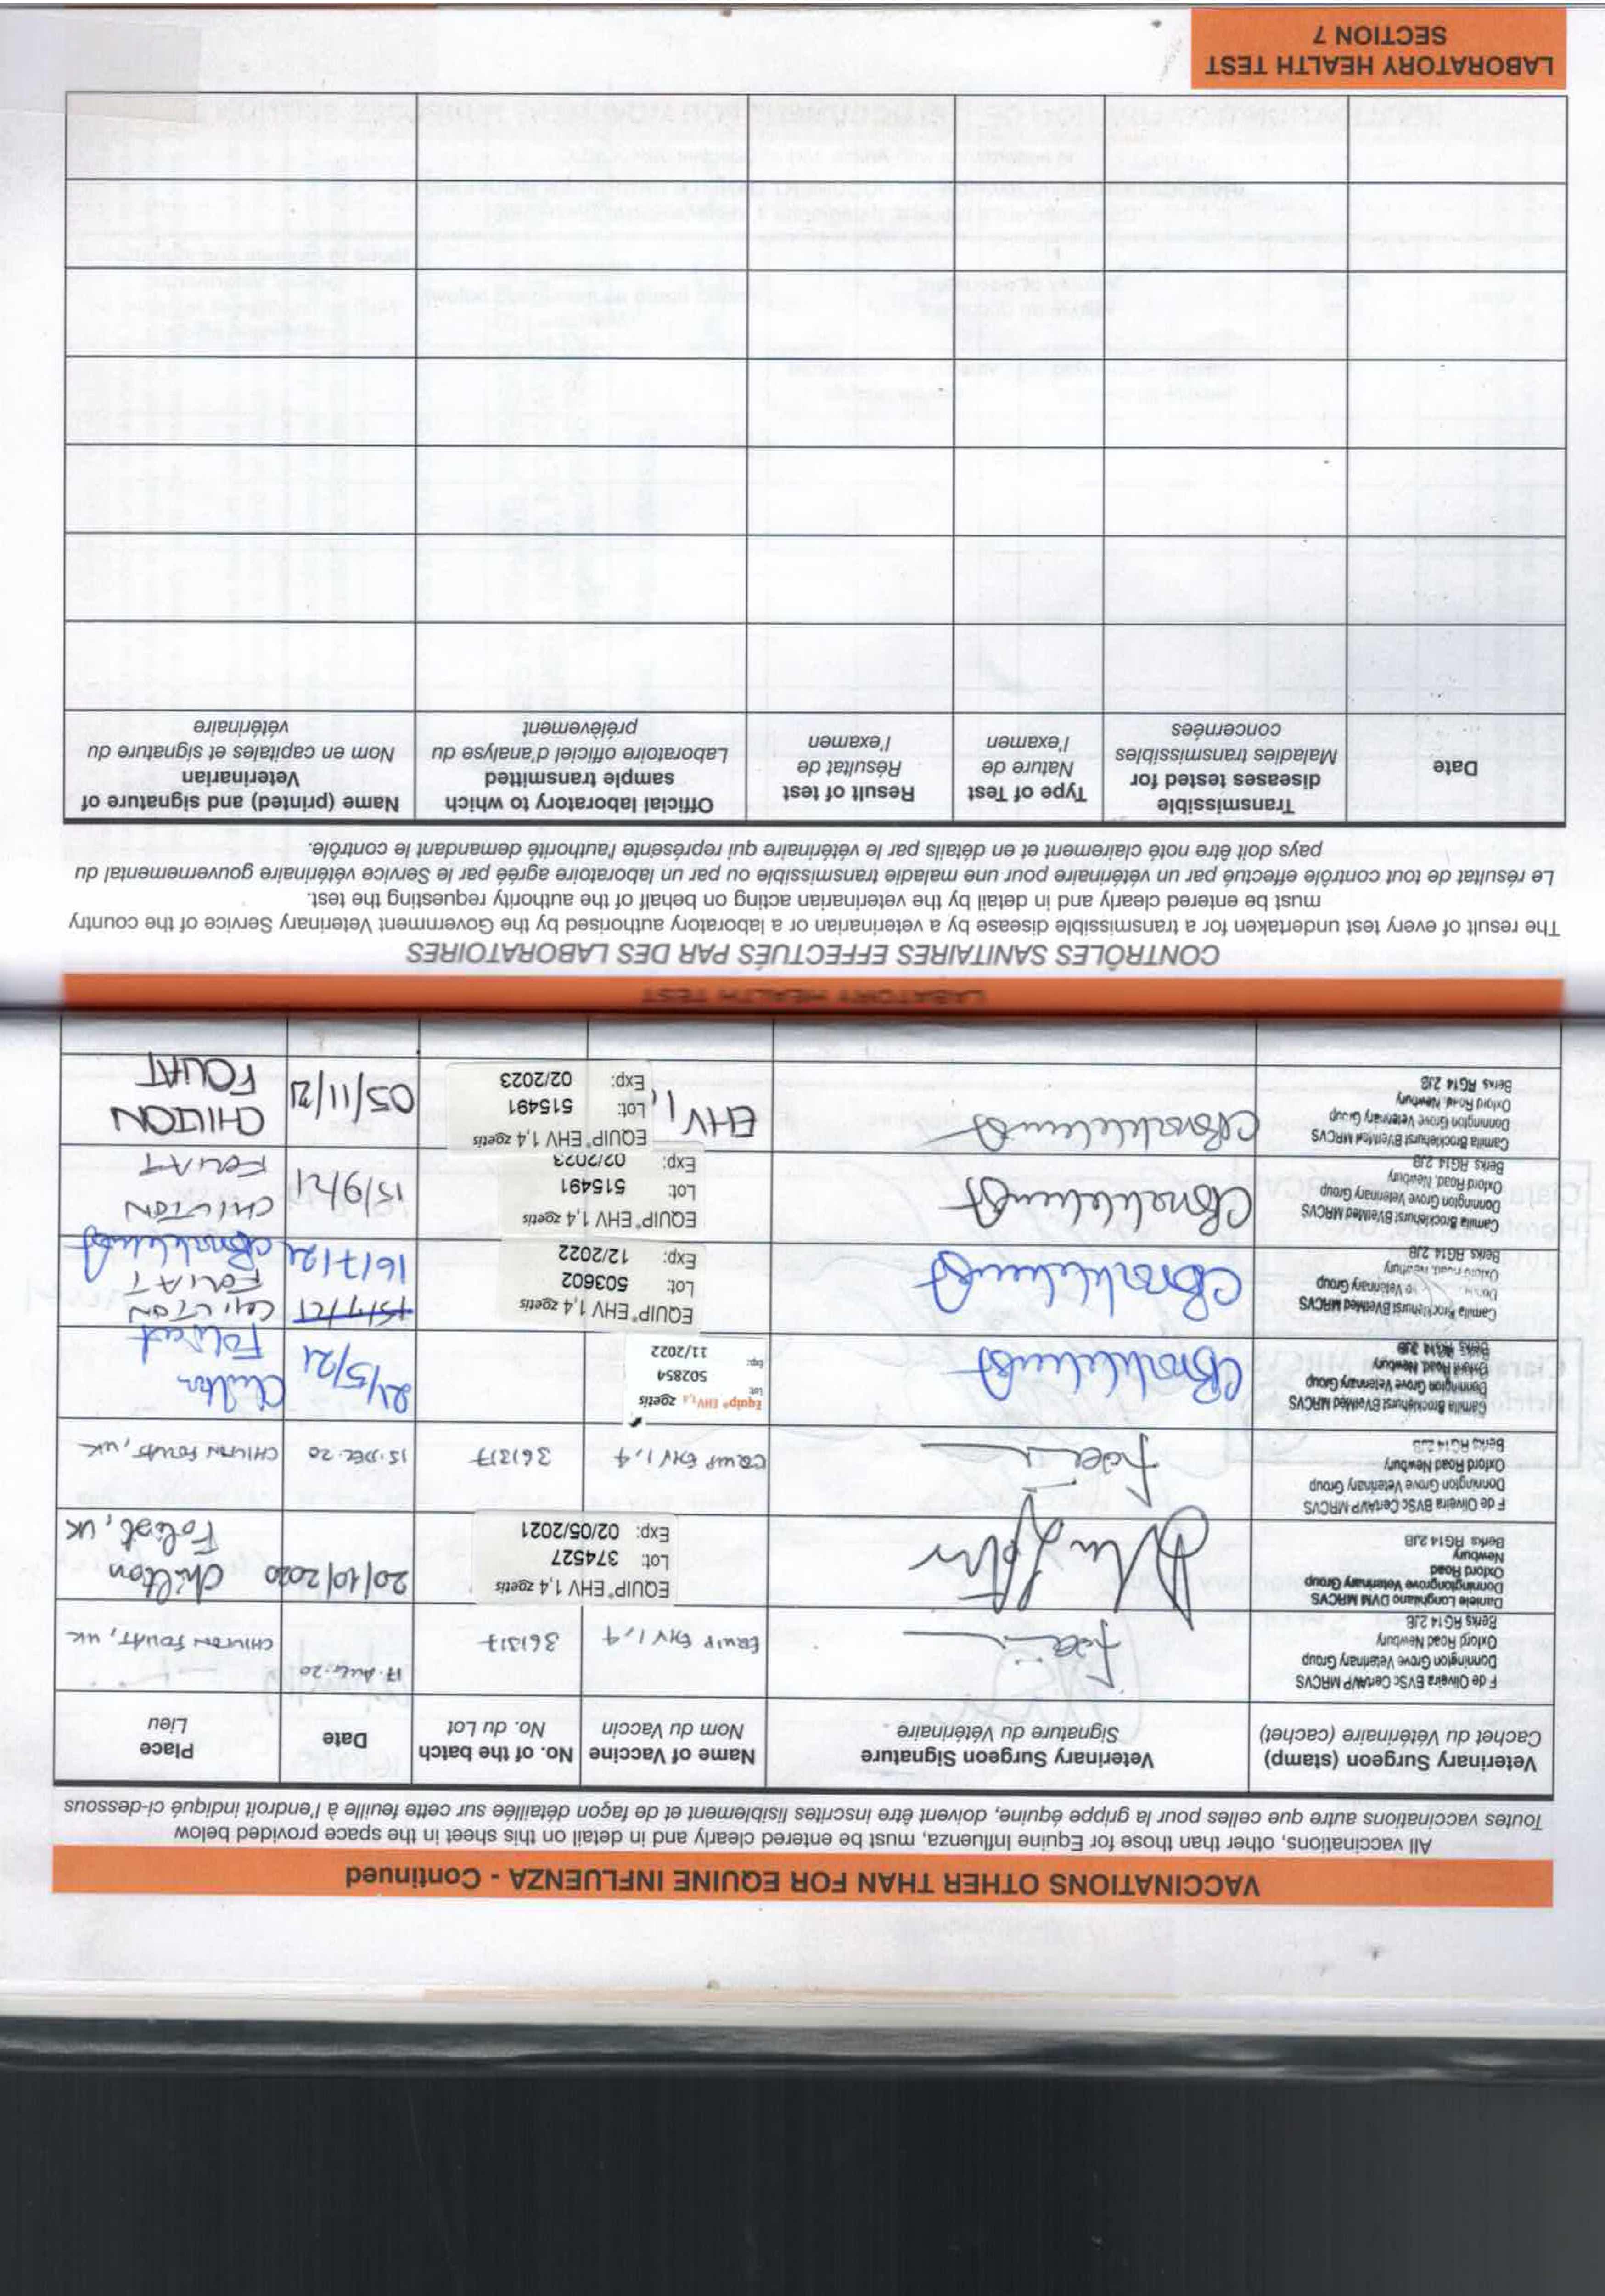 VACCINATIONS OTHER THAN FOR EQUINE INFLUENZA - Continued
All vaccinations, other than those for Equine Influenza, must be entered clearly and in detail on this sheet in the space provided below
Toutes vaccinations autre que celles pour la grippe équine, doivent être inscrites lisiblement et de façon détaillée sur cette feuille à l'endroit indiqué ci-dessous
Veterinary Surgeon (stamp)
Cachet du Vétérinaire (cachet)
Veterinary Surgeon Signature
Signature du Vétérinaire
Name of Vaccine
Nom du Vaccin
No. of the batch
No. du Lot
Date
Place
Lieu
F de Oliveira BVSc CertAVP MRCVS
Donnington Grove Veterinary Group
Oxford Road Newbury
Berks RG14 2JB
EQUIP EHV 1,4
361317
17.AUG.20
CHILTON FOLIAT, UK
Daniele Longhitano DVM MRCVS
Donningtongrove Veterinary Group
Oxford Road
Newbury
Berks RG14 2JB
EQUIP® EHV 1,4 zoetis
Lot: 374527
Exp: 02/05/2021
20/10/2020
Chilton
Foliat, UK
F de Oliveira BVSc CertAVP MRCVS
Donnington Grove Veterinary Group
Oxford Road Newbury
Berks RG14 2JB
EQUIP EHV 1,4
361317
15.DEC.20
CHILTON FOLIAT, UK
Camilla Brocklehurst BVetMed MRCVS
Donnington Grove Veterinary Group
Oxford Road, Newbury
Berks RG14 2JB
Equip® EHV1,4 zoetis
Lot: 502854
Exp: 11/2022
21/5/21
Chilton
Foliat
Camilla Brocklehurst BVetMed MRCVS
Veterinary Group
Oxford Road, Newbury
Berks RG14 2JB
EQUIP® EHV 1,4 zoetis
Lot: 503602
Exp: 12/2022
15/7/21
16/7/21
CHILTON
FOLIAT
Camilla Brocklehurst BVetMed MRCVS
Donnington Grove Veterinary Group
Oxford Road, Newbury
Berks RG14 2JB
EQUIP® EHV 1,4 zoetis
Lot: 515491
Exp: 02/2023
15/9/21
CHILTON
FOLIAT
Camilla Brocklehurst BVetMed MRCVS
Donnington Grove Veterinary Group
Oxford Road, Newbury
Berks RG14 2JB
EHV 1,
EQUIP® EHV 1,4 zoetis
Lot: 515491
Exp: 02/2023
05/11/21
CHILTON
FOLIAT
LABATORY HEALTH TEST
CONTRÔLES SANITAIRES EFFECTUÉS PAR DES LABORATOIRES
The result of every test undertaken for a transmissible disease by a veterinarian or a laboratory authorised by the Government Veterinary Service of the country
must be entered clearly and in detail by the veterinarian acting on behalf of the authority requesting the test.
Le résultat de tout contrôle effectué par un vétérinaire pour une maladie transmissible ou par un laboratoire agréé par le Service vétérinaire gouvernemental du
pays doit être noté clairement et en détails par le vétérinaire qui représente l'authorité demandant le contrôle.
Date
Transmissible
diseases tested for
Maladies transmissibles
concernées
Type of Test
Nature de
l'examen
Result of test
Résultat de
l'examen
Official laboratory to which
sample transmitted
Laboratoire officiel d'analyse du
prélèvement
Name (printed) and signature of
Veterinarian
Nom en capitales et signature du
vétérinaire
LABORATORY HEALTH TEST
SECTION 7